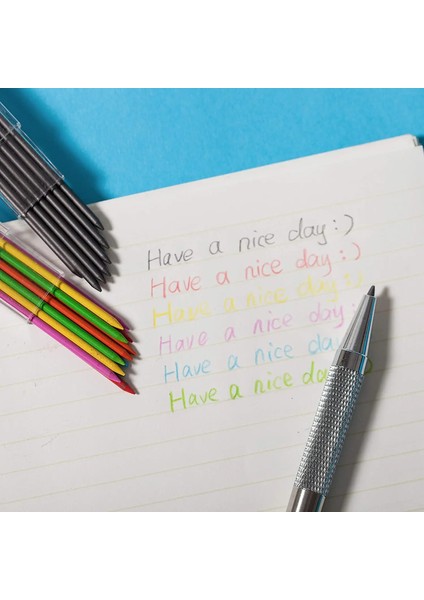 Have a nice day :)
Have a nice day :)
Have a nice day :)
Have a nice day :
Have a nice da
Have a nice da